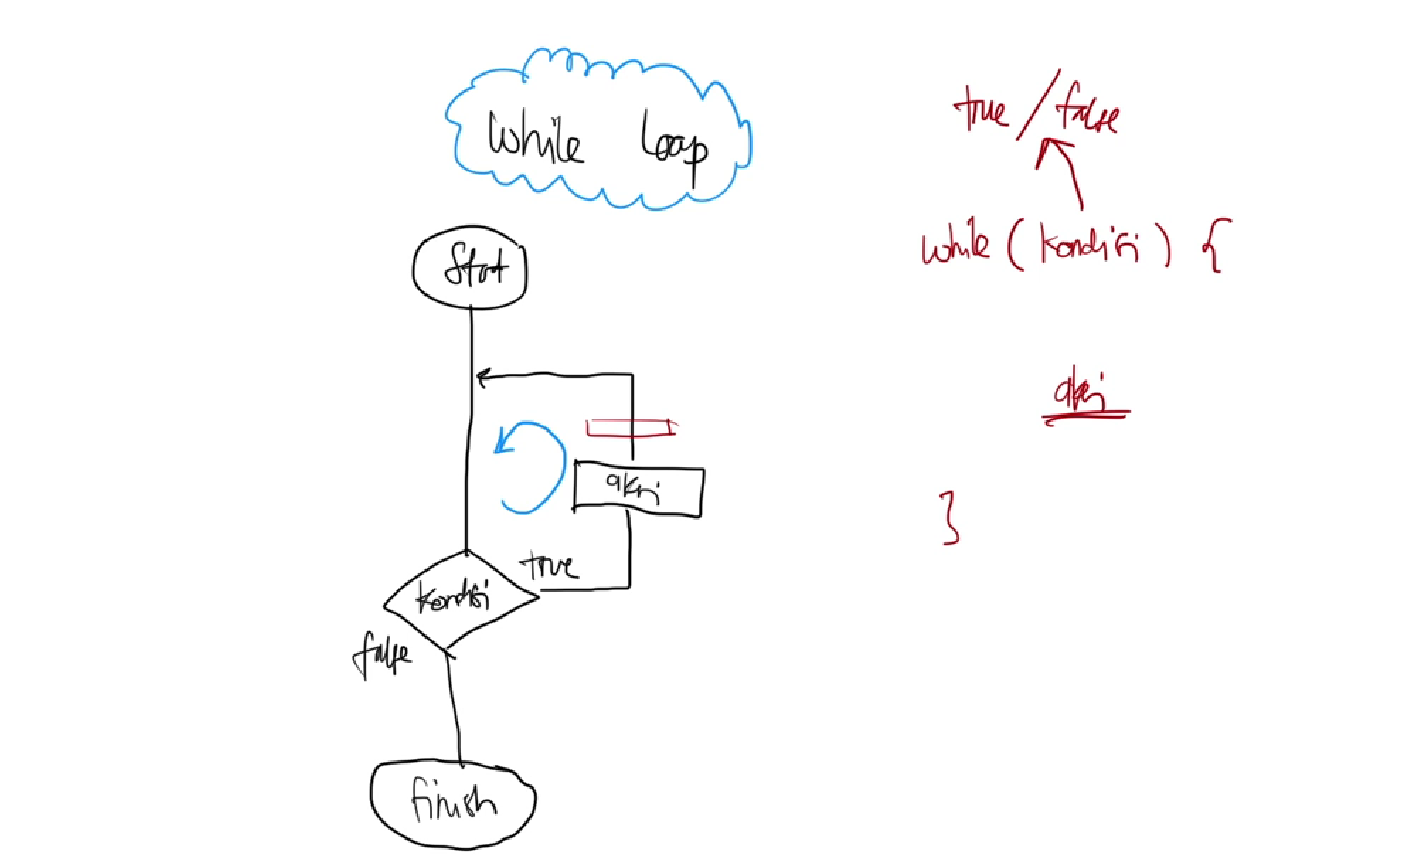 While Loop
Start
aksi
true
kondisi
false
finish
true / false
while ( kondisi ) {
aksi
}